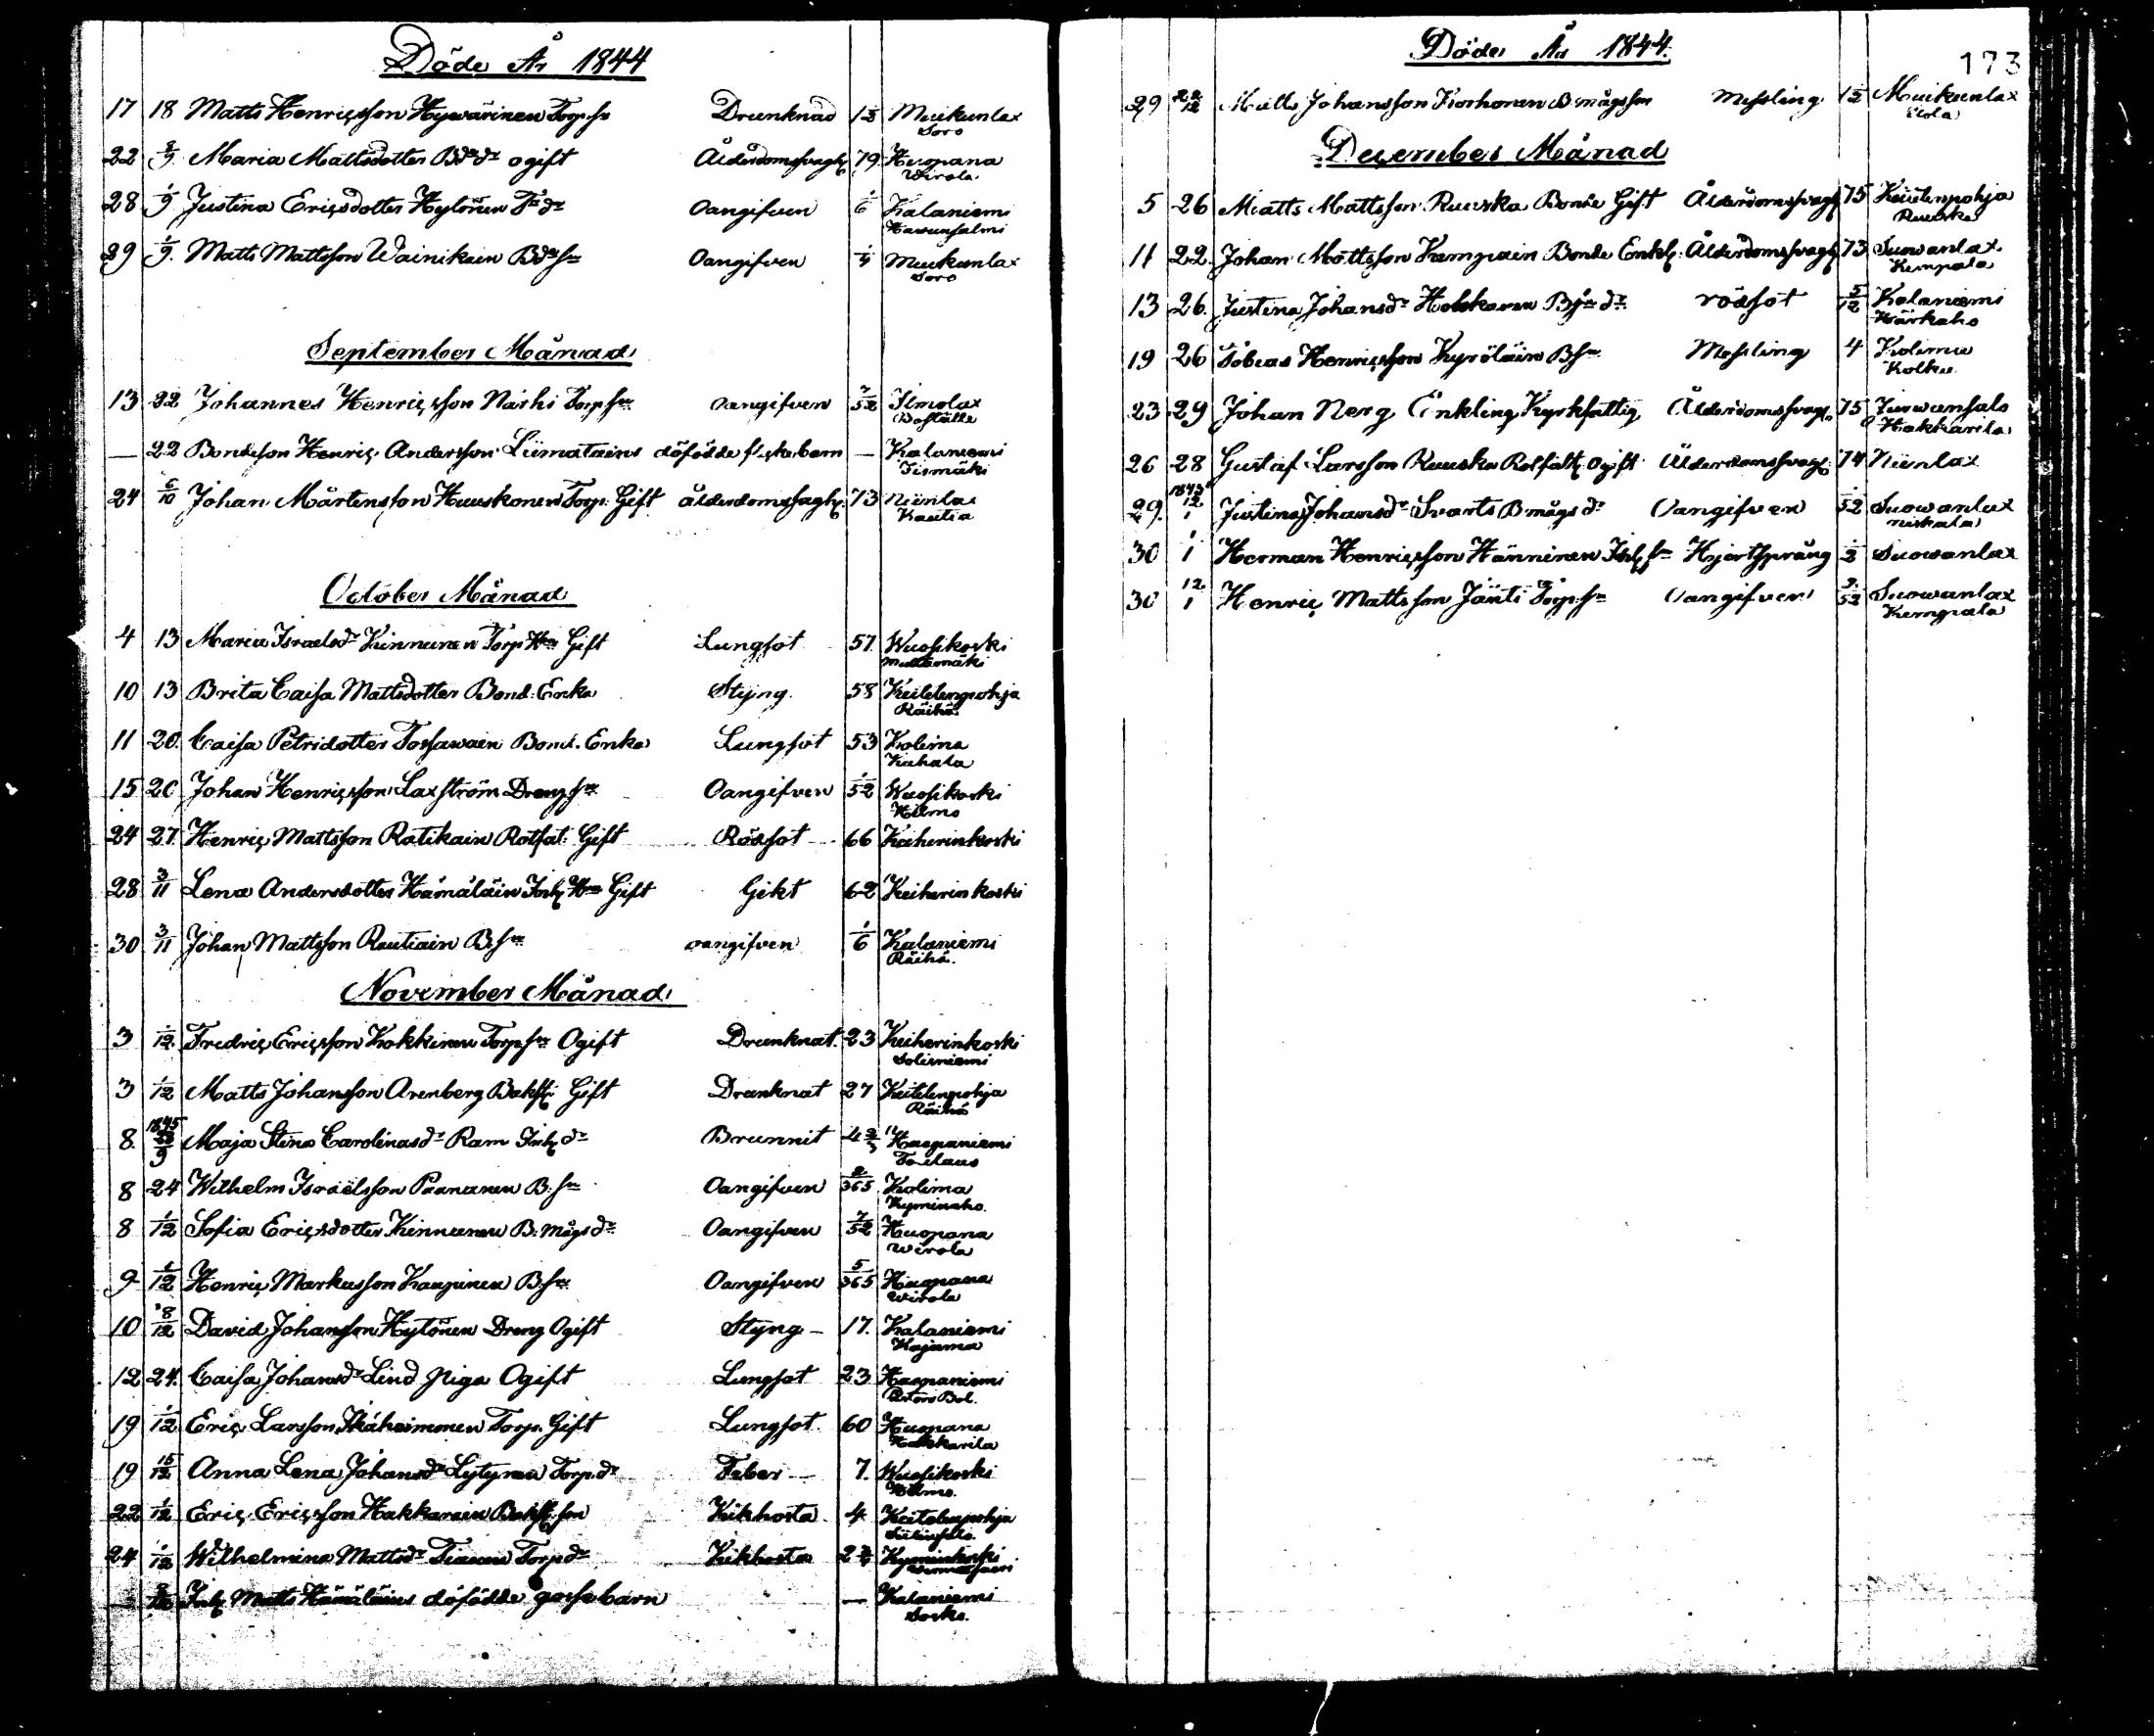 Döde År 1844
17 18 Matts Henricsson Hyvärinen Torp.sn Drunknad 1/2 Muikunlax
Soro
22 8/9 Maria Mattsdotter Bdedr ogift Ålderdomssvagh. 79 Huopana
Wirola
28 1/9 Justina Ericsdotter Hytönen Tdr Oangifven 1/6 Kalaniemi
Havunsalmi
29 1/9 Matts Mattsson Wainikain Bdesn Oangifven 1/4 Muikunlax
Soro
September Månad
13 22 Johannes Henricsson Närhi Torpsn oangifven 7/52 Ilmolax
Boställe
— 22 Bondeson Henric Anderssons Liimatains döfödde flickebarn — Kalaniemi
24 6/10 Johan Mårtensson Huuskonen Torp. Gift ålderdomssvagh. 73 Niinlax
Kautia
October Månad
4 13 Maria Israelsdr Kinnunen Torp Hu Gift Lungsot 57 Wuosikoski
10 13 Brita Caisa Mattsdotter Bond. Enka Styng. 58 Keitelenpohja
Räihä
11 20 Caisa Petridotter Tossavain Bond. Enka Lungsot 53 Kolima
Kahala
15 20 Johan Henricsson Laxström Drengsn Oangifven 1/52 Wuosikoski
Hilmo
24 27 Henric Mattsson Ratikain Rotfat. Gift Rödsot 66 Keiherinkoski
28 3/11 Lena Andersdotter Hämäläin Inh. Hu Gift Gikt 62 Keiherinkoski
30 3/11 Johan Mattsson Rautiain B.sn oangifven 1/6 Kalaniemi
Räihä.
November Månad
3 1/12 Fredric Ericsson Kokkinen Torpsn Ogift Drunknat. 23 Keiherinkoski
3 1/12 Matts Johansson Arenberg Bakst. Gift Drunknat 27 Keitelenpohja
Räihä
8. 1845 Maja Stina Carolinasdr Ram Inh dr Brunnit 4 Haapaniemi
8 24 Wilhelm Israëlsson Paananen B.sn Oangifven 2/365 Kolima
Kyminaho.
8 1/12 Sofia Ericsdotter Kinnunen B. mågs dr Oangifven 7/52 Huopana
Wirola
9 1/12 Henric Markusson Kaupinen B.sn Oangifven 5/365 Huopana
Wirola
10 8/12 David Johansson Hytönen Dreng Ogift Styng — 17. Kalaniemi
Kajama
12 24. Caisa Johansdr Lind Piga Ogift Lungsot 23 Haapaniemi
19 1/12 Eric Larsson Torp. Gift Lungsot 60 Huopana
Hakkarila
19 15/12 Anna Lena Johansdr Lytynen Torp.dr Feber — 7. Wuosikoski
Hilmo.
22 1/12 Eric Ericsson Hakkarain Bakst. son Kikhosta 4 Keitelenpohja
24 1/12 Wilhelmina Mattsdr Torpdr Kikhosta 2 Kyminkoski
— Inh. Matts Hämäläins döfödde gossebarn — Kalaniemi
Sorko.
Döde År 1844.
173
29 22/12 Matts Johansson Korhonen B. mågsson Messling 1/2 Muikunlax
December Månad
5 26 Matts Mattsson Ruuska Bonde Gift Ålderdomssvagh 75 Keitelenpohja
Ruuska
11 22. Johan Mattsson Kempain Bonde Enkl. Ålderdomssvagh 73 Suovanlax
Kempala
13 26. Justina Johansdr Holskainen B.sn dr rödsot 5/12 Kalaniemi
Härkaho
19 26 Tobias Henricsson Kyröläin Bsn Messling 4 Kolima
Kolku
23 29 Johan Nerg Enkling Kyrkfattig Ålderdomssvagh. 75 Juovunsalo
Hakkarila
26 28 Gustaf Larsson Ruuska Rotfatt. ogift Ålderdomssvagh. 74 Niinlax
29. 1845 12/1 Justina Johansdr Svarts B mågs dr Oangifven 1/52 Suovanlax
Niskala
30 1/1 Herman Henricsson Hänninen Inh sn Hjertsprång 1/2 Suovanlax
30 12/1 Henric Mattsson Jänti Torp.sn Oangifven 3/52 Suovanlax
Kempala